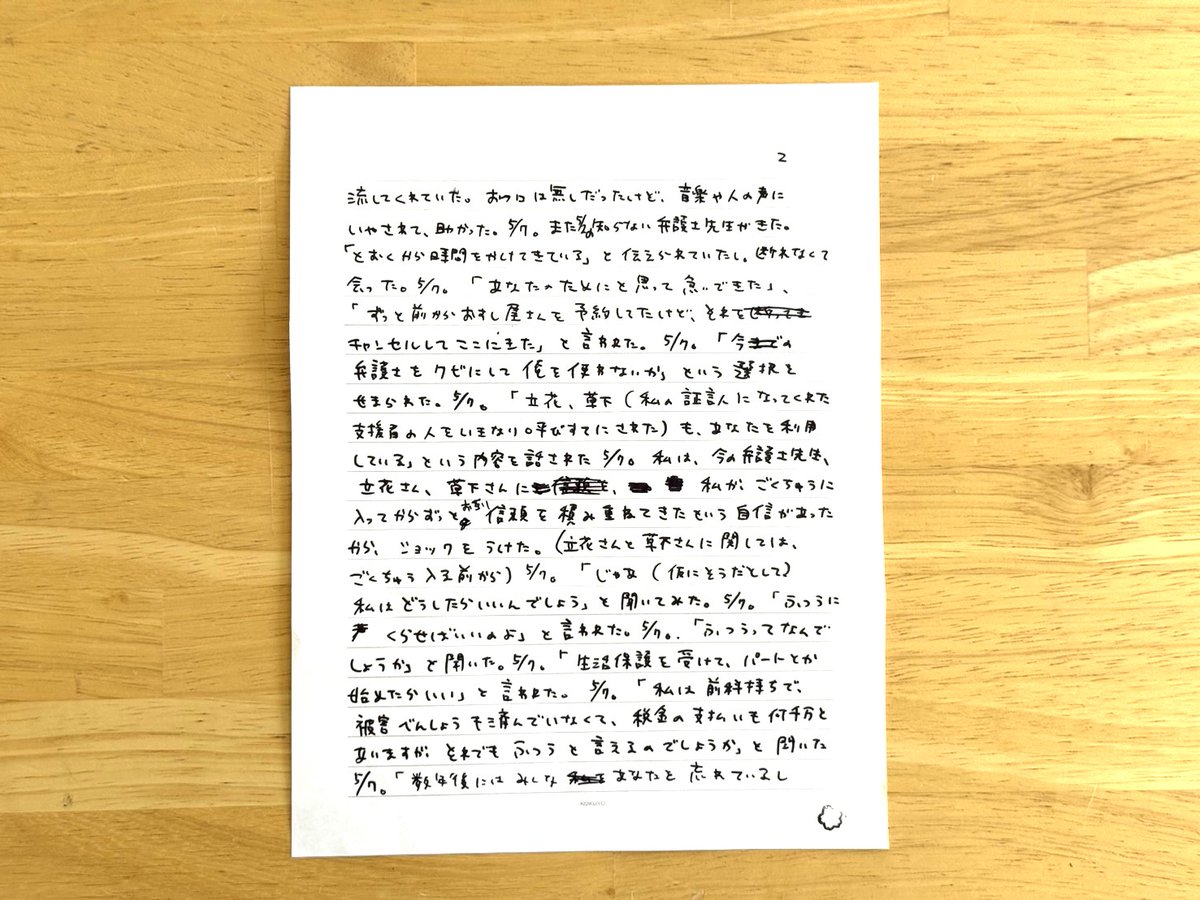 2
流してくれていた。おフロは無しだったけど、音楽や人の声に
いやされて、助かった。5/7。また知らない弁護士先生がきた。
「とおくから時間をかけてきている」と伝えられていたし。断れなくて
会った。5/7。「あなたのためにと思って急いできた」、
「ずっと前からおすし屋さんを予約してたけど、それを
キャンセルしてここにきた」と言われた。5/7。「今までの
弁護士をクビにして俺を使わないか」という選択を
せまられた。5/7。「立花、草下(私の証言人になってくれた
支援者の人をいきなり呼びすてにされた)も、あなたを利用
している」という内容を話された5/7。私は、今の弁護士先生、
立花さん、草下さんに、私がごくちゅうに
入ってからずっとお互い信頼を積み重ねてきたという自信があった
から、ショックをうけた。(立花さんと草下さんに関しては、
ごくちゅう入る前から)5/7。「じゃあ(仮にそうだとして)
私はどうしたらいいんでしょう」と聞いてみた。5/7。「ふつうに
くらせばいいのよ」と言われた。5/7.「ふつうってなんで
しょうか」と聞いた。5/7。「生活保護を受けて、パートとか
始めたらいい」と言われた。5/7。「私は前科持ちで、
被害べんしょうも済んでいなくて、税金の支払いも何千万と
ありますが、それでもふつうと言えるのでしょうか」と聞いた
5/7。「数年後にはみんなあなたと忘れているし
KOKUYO